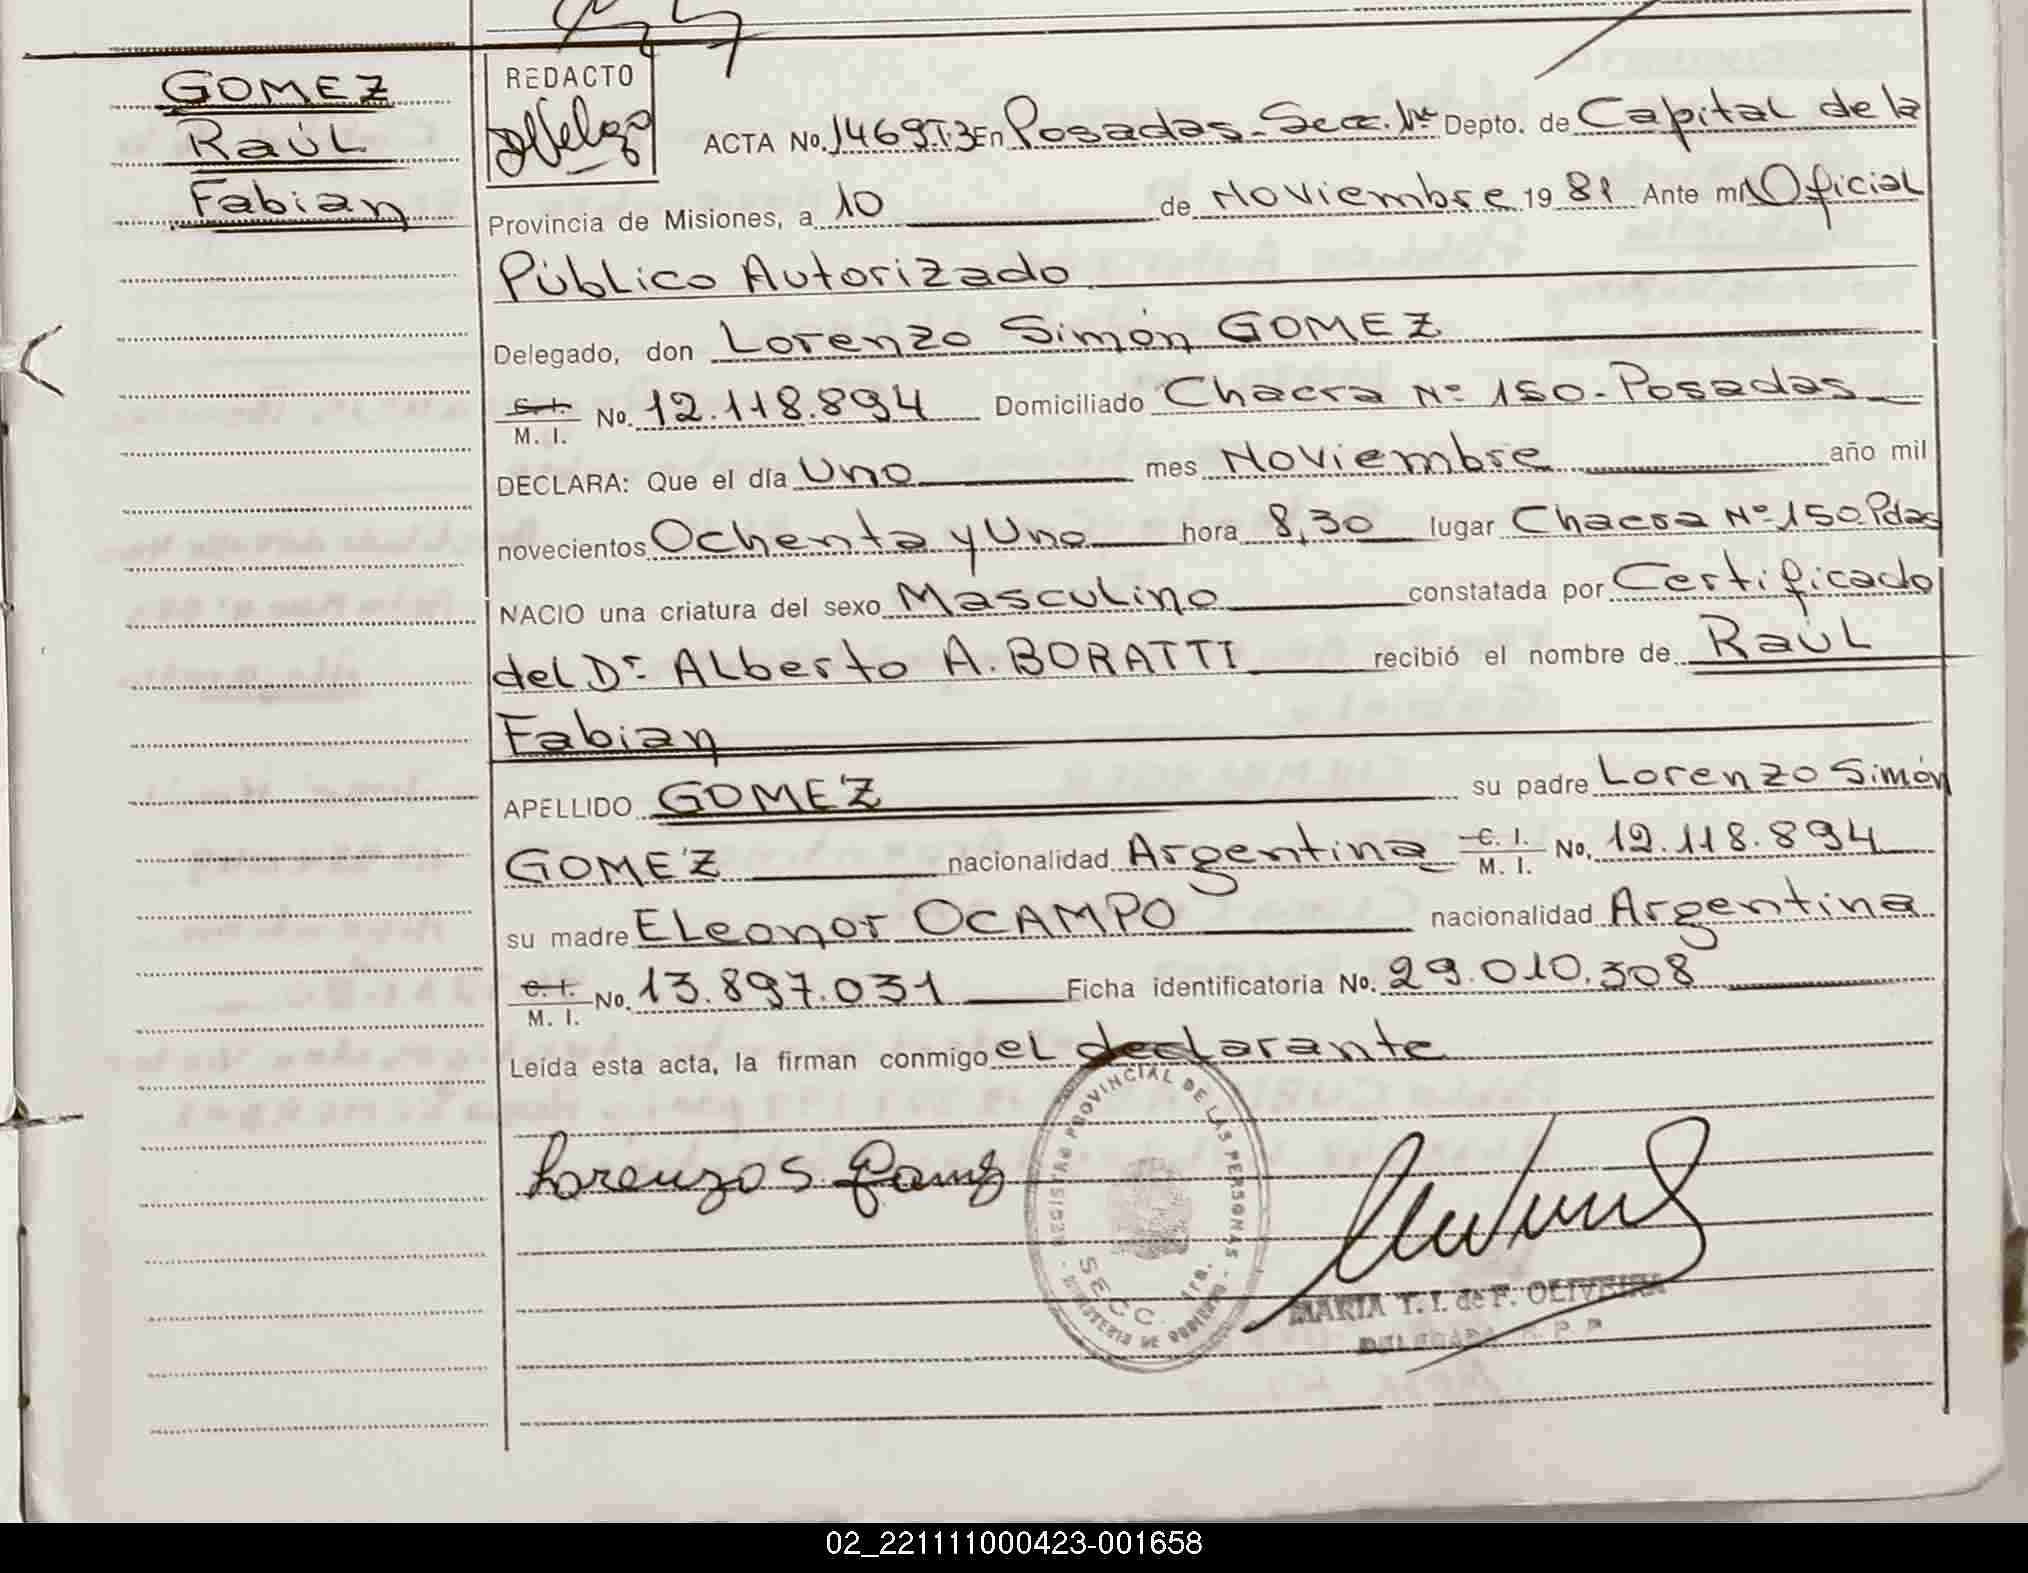 GOMEZ
Raúl
Fabian
REDACTO
ACTA No. 1469 T.3 En Posadas-Secc. 1ra Depto. de Capital de la
Provincia de Misiones, a 10 de Noviembre 1981 Ante mí Oficial
Público Autorizado
Delegado, don Lorenzo Simón GOMEZ
C.I. M. I. No. 12.118.894 Domiciliado Chacra Nº 150-Posadas
DECLARA: Que el día Uno mes Noviembre año mil
novecientos Ochenta y Uno hora 8,30 lugar Chacra Nº 150 Pdas
NACIO una criatura del sexo Masculino constatada por Certificado
del Dr. Alberto A. BORATTI recibió el nombre de Raúl
Fabian
APELLIDO GOMEZ su padre Lorenzo Simón
GOMEZ nacionalidad Argentina C. I. M. I. No. 12.118.894
su madre Eleonor OCAMPO nacionalidad Argentina
C. I. M. I. No. 13.897.031 Ficha identificatoria No. 29.010.308
Leída esta acta, la firman conmigo el declarante
Lorenzo S Gomez
REGISTRO PROVINCIAL DE LAS PERSONAS
SECC. 1ra.
MINISTERIO DE GOBIERNO
MARIA T. I. de F. OLIVEIRA
DELEGADA R. P. P.
02_221111000423-001658